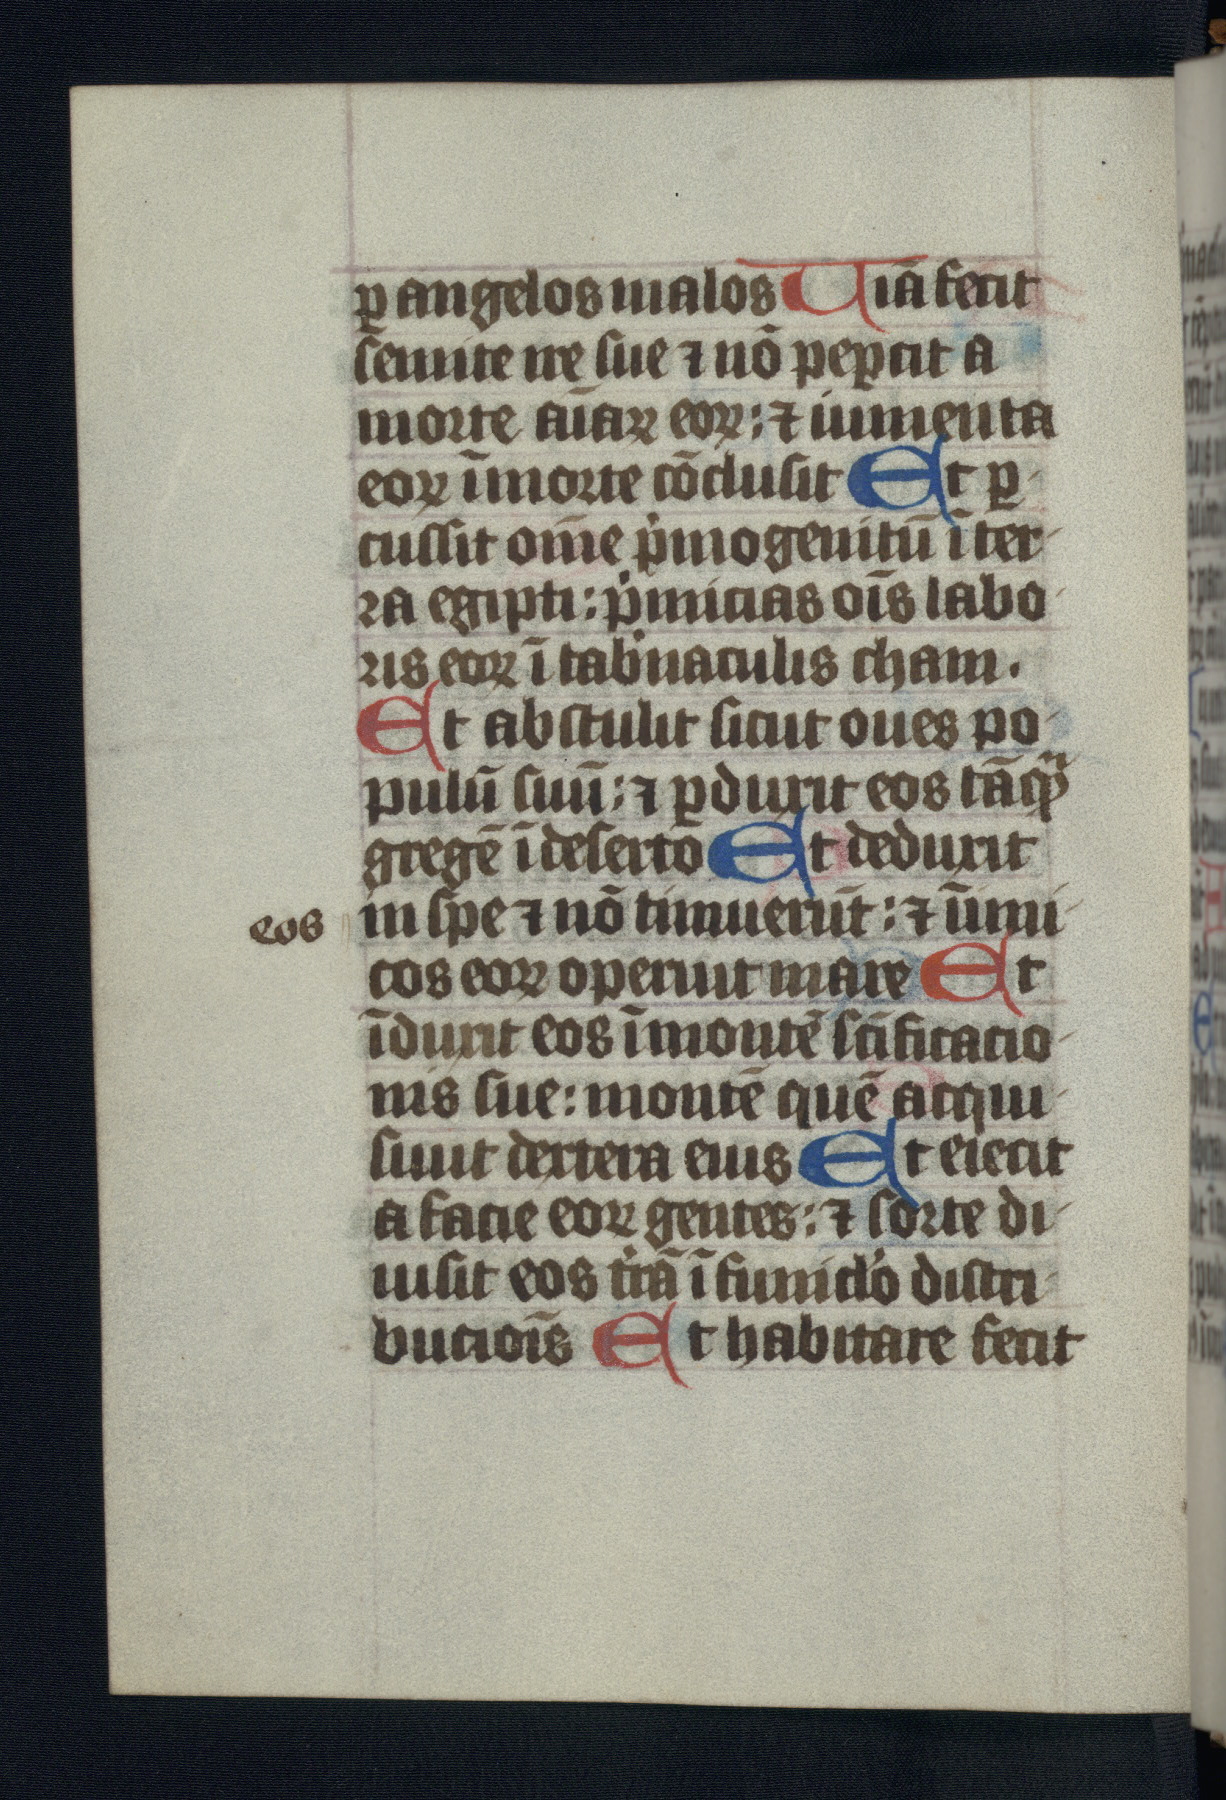 ꝑ angelos malos Uiā fecit
semite ire sue ⁊ nō peꝑcit a
morte aīaꝝ eoꝝ: ⁊ iumenta
eoꝝ ī morte cōclusit Et ꝑ-
cussit om̄e pͥmogenitū ī ter-
ra egipti: pͥmicias oīs labo-
ris eoꝝ ī tab̾naculis cham.
Et abstulit sicut oues po-
pulū suū: ⁊ ꝑduxit eos tāqᷓ
gregē ī deserto Et deduxit
eos in spe ⁊ nō timuerūt: ⁊ īimi-
cos eoꝝ operuit mare Et
īduxit eos ī montē sc̄ificacio-
nis sue: montē quē acqui-
siuit dextera eius Et eiecit
a facie eoꝝ gentes: ⁊ sorte di-
uisit eos t̾rā ī funic̾lo distri-
bucioīs Et habitare fecit